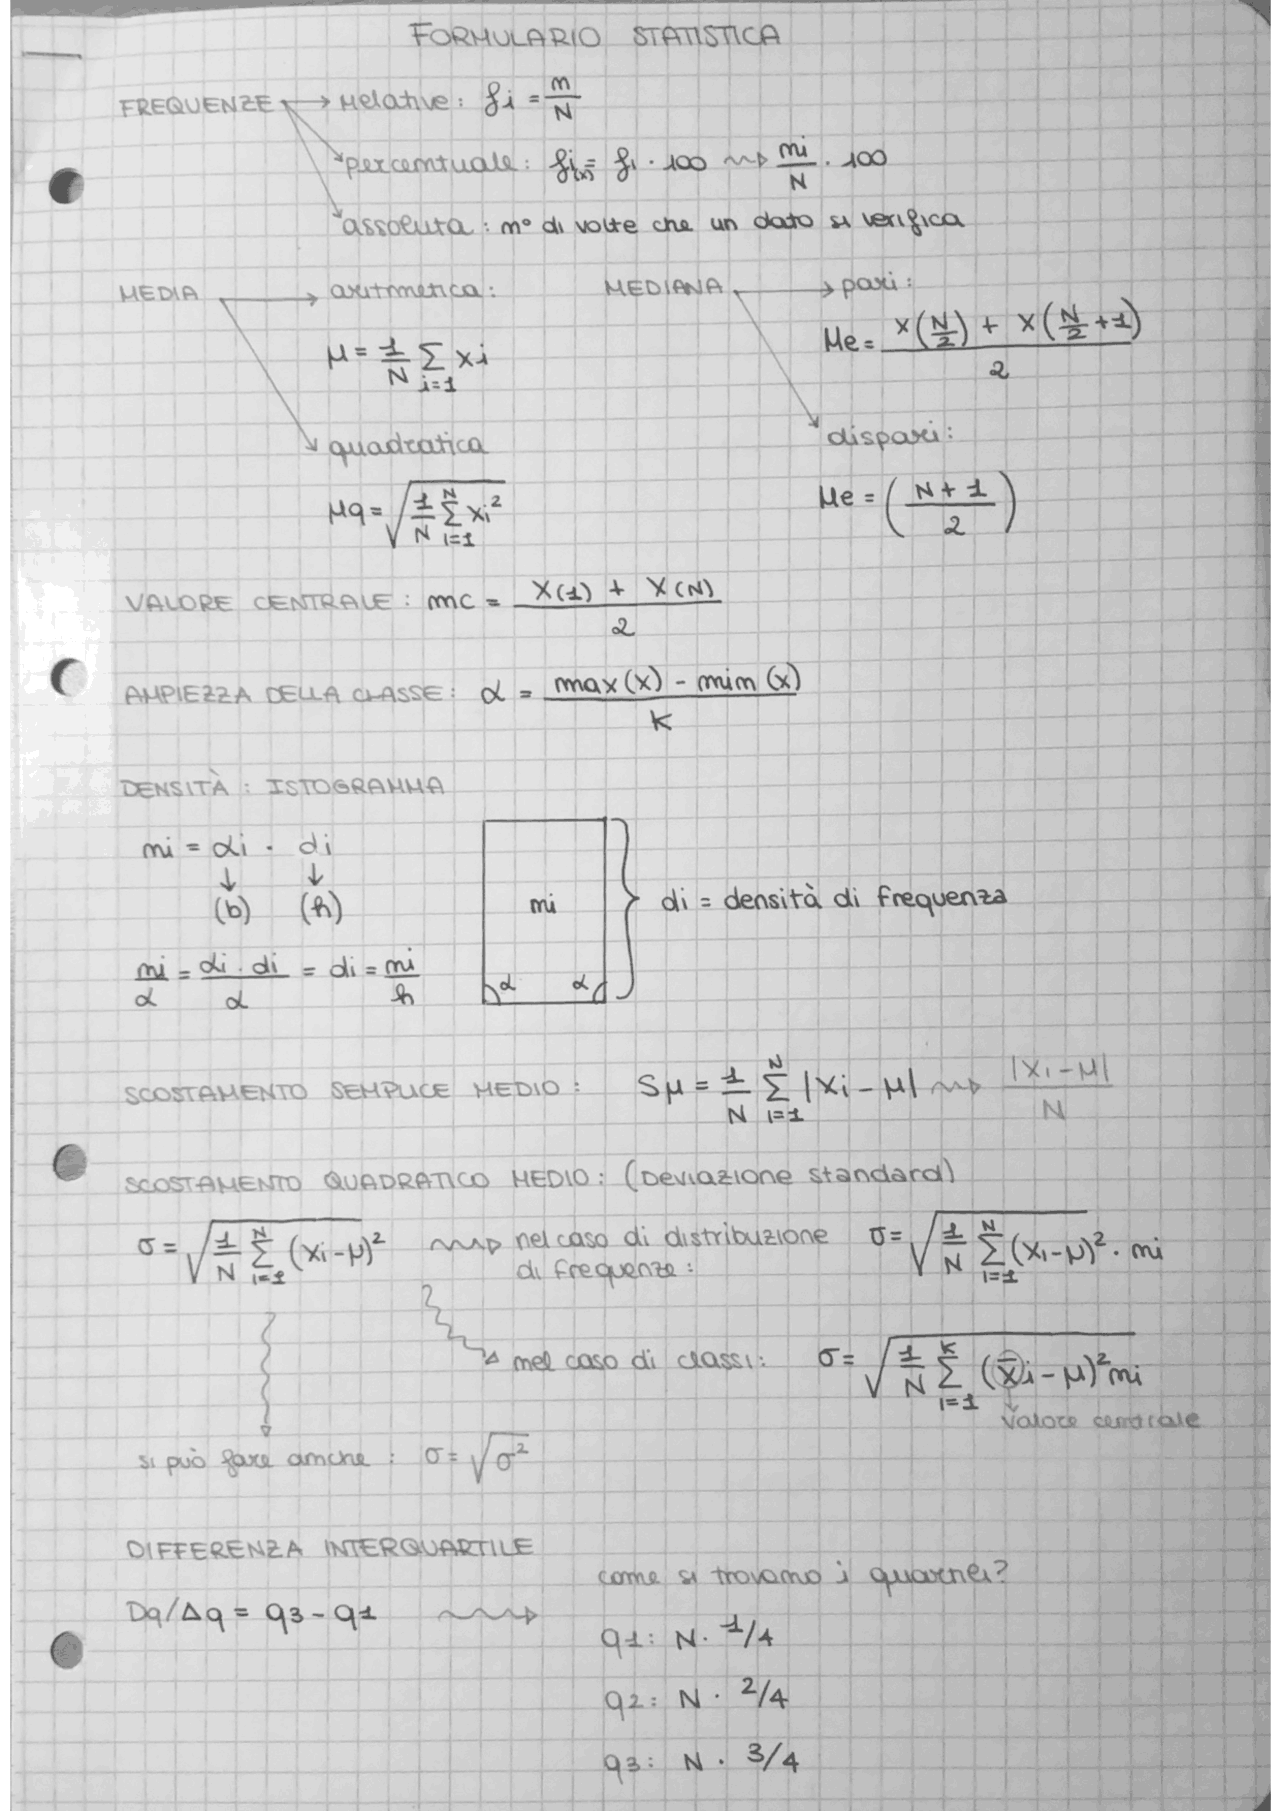 FORMULARIO STATISTICA
FREQUENZE → relative: fi = n/N
percentuale: fi(%) = fi · 100 ⇝ ni/N · 100
assoluta: n° di volte che un dato si verifica
MEDIA → aritmetica: MEDIANA → pari:
μ = 1/N Σ i=1 xi
Me = (x(N/2) + x(N/2 + 1))/2
quadratica
dispari:
μq = √(1/N Σ N i=1 xi²)
Me = ((N + 1)/2)
VALORE CENTRALE: mc = (x(1) + x(N))/2
AMPIEZZA DELLA CLASSE: α = (max(x) - min(x))/K
DENSITÀ: ISTOGRAMMA
ni = αi · di
↓ ↓
(b) (h)
ni
di = densità di frequenza
ni/α = (αi · di)/α = di = ni/h
α α
SCOSTAMENTO SEMPLICE MEDIO: Sμ = 1/N Σ N i=1 |xi - μ| ⇝ |xi - μ|/N
SCOSTAMENTO QUADRATICO MEDIO: (Deviazione standard)
σ = √(1/N Σ N i=1 (xi - μ)²) ⇝ nel caso di distribuzione di frequenze: σ = √(1/N Σ N i=1 (xi - μ)² · ni)
nel caso di classi: σ = √(1/N Σ K i=1 (x̄i - μ)² ni)
valore centrale
si può fare anche: σ = √σ²
DIFFERENZA INTERQUARTILE
come si trovano i quartili?
Dq/Δq = q3 - q1 ⇝
q1: N · 1/4
q2: N · 2/4
q3: N · 3/4